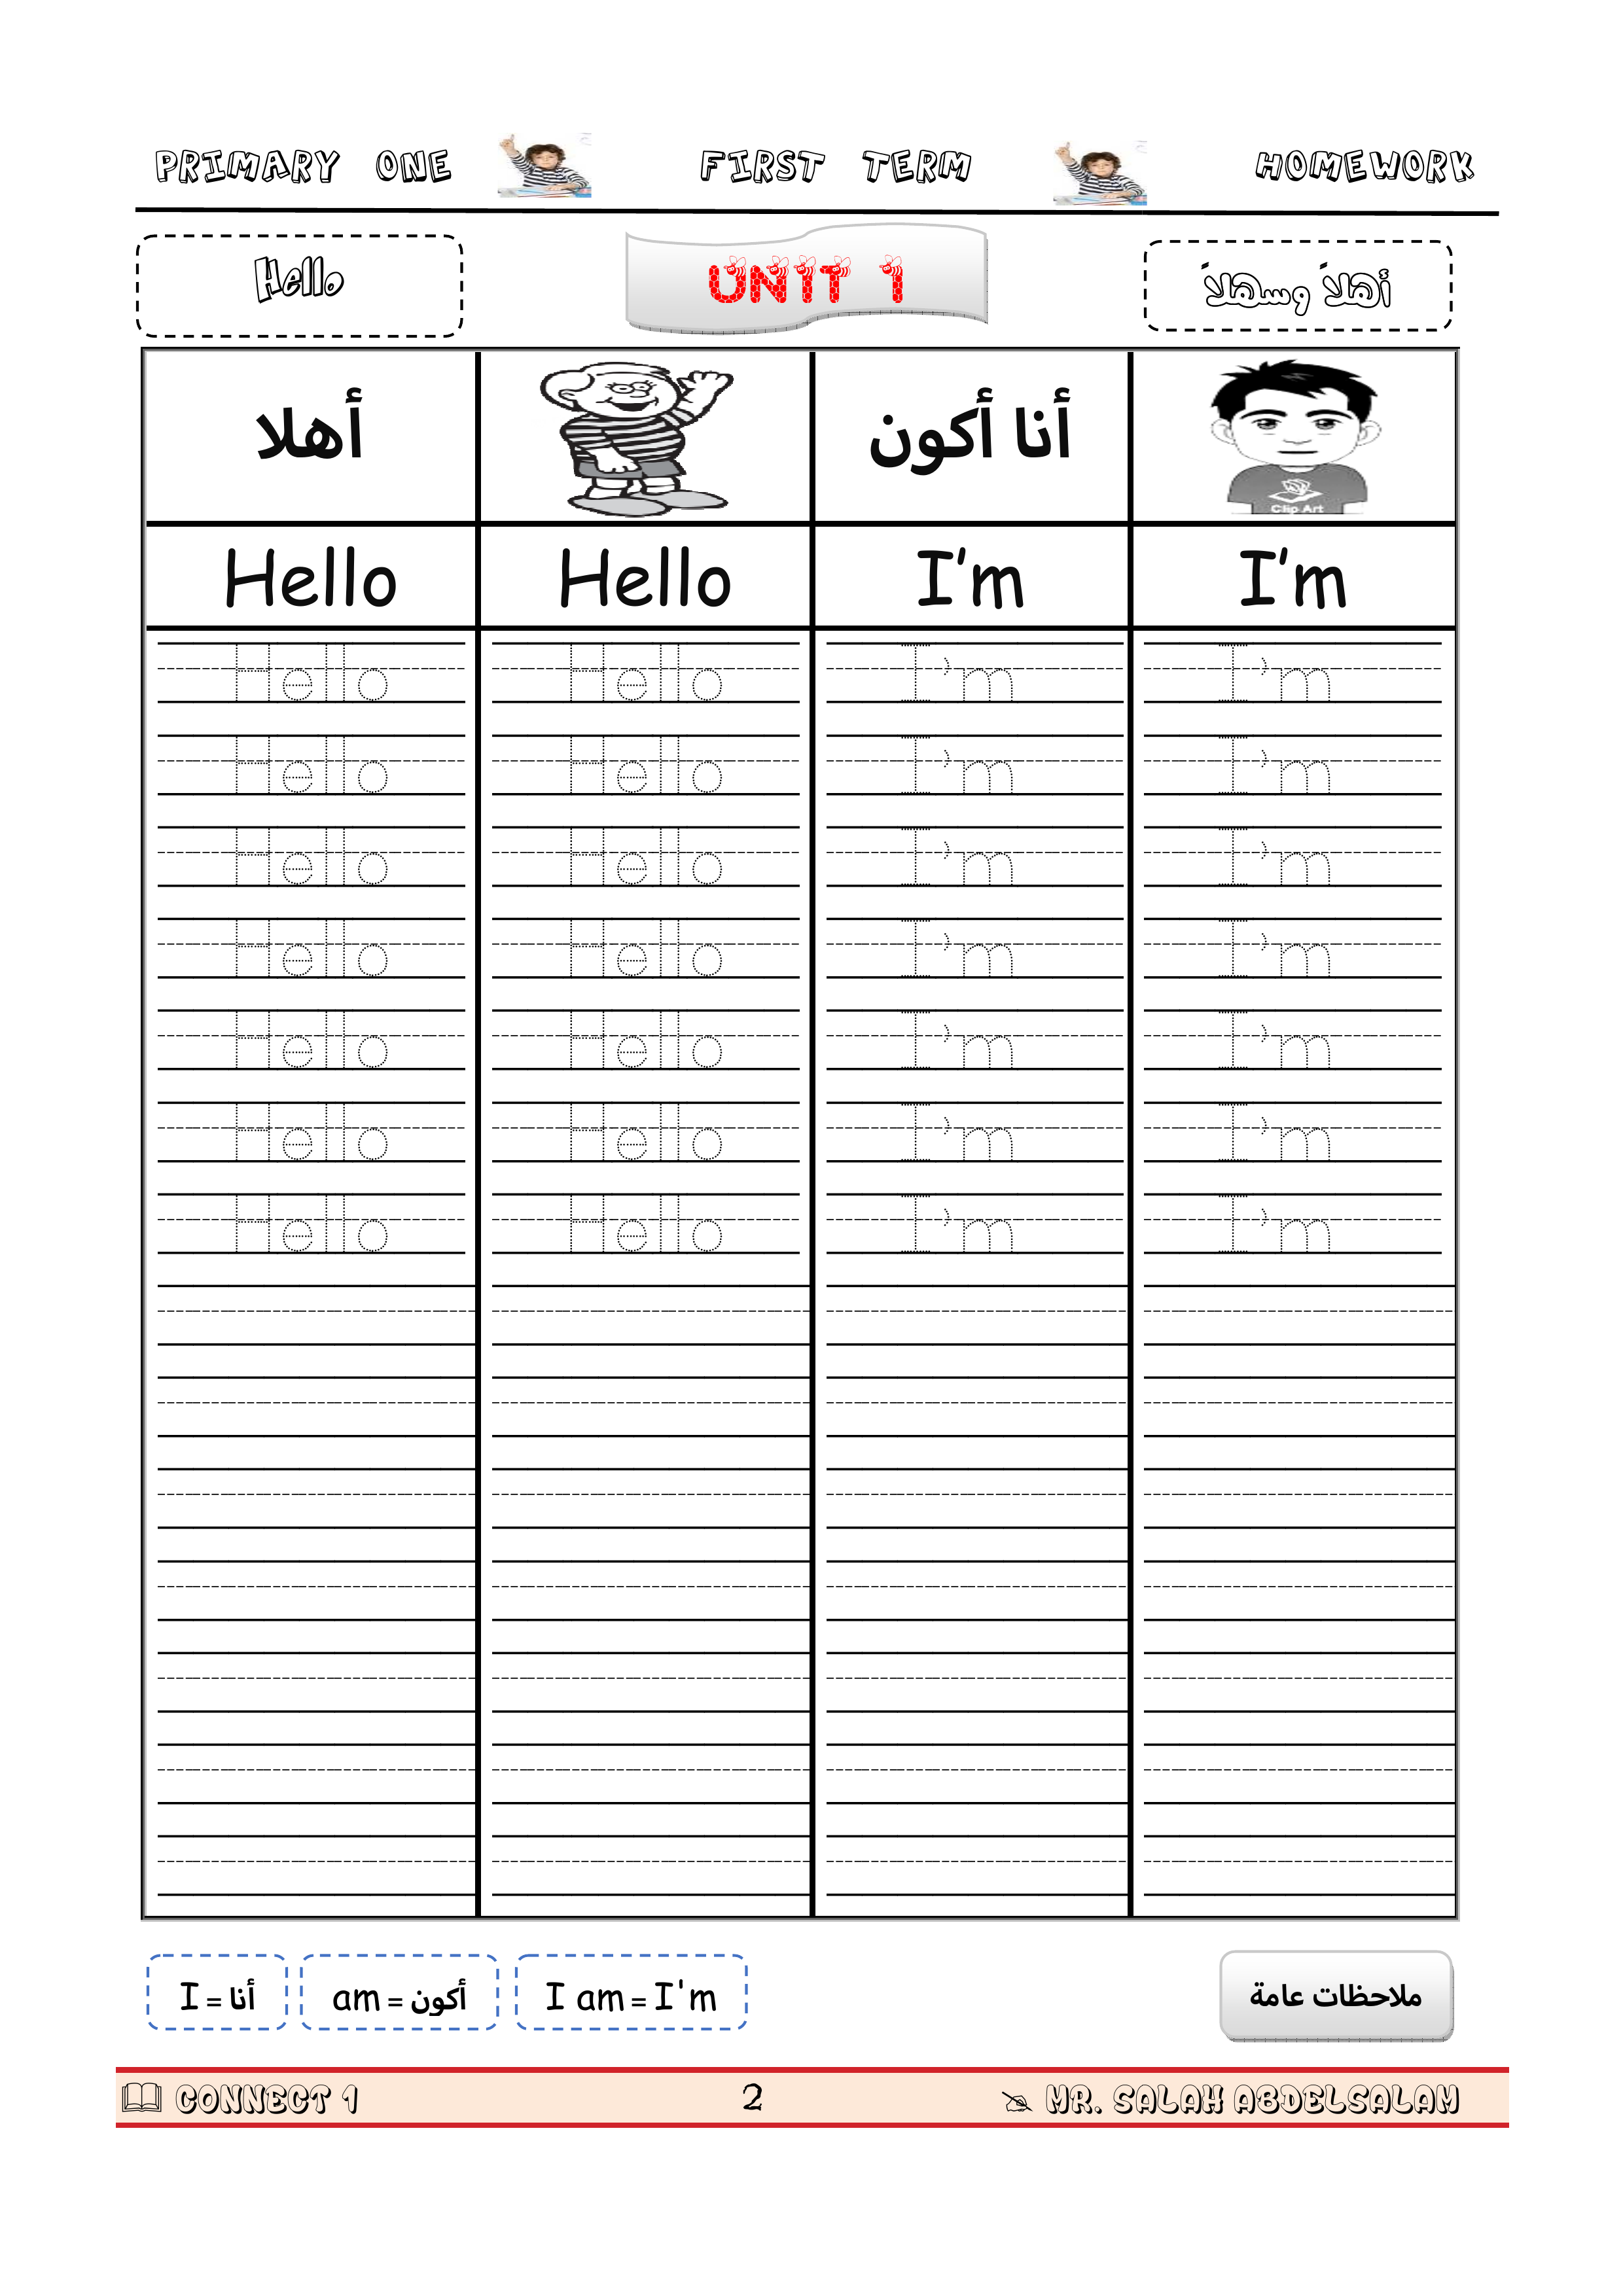 PRIMARY ONE FIRST TERM HOMEWORK
Hello UNIT 1 أهلاً وسهلاً
أهلا أنا أكون
Clip Art
Hello Hello I'm I'm
Hello Hello I'm I'm
Hello Hello I'm I'm
Hello Hello I'm I'm
Hello Hello I'm I'm
Hello Hello I'm I'm
Hello Hello I'm I'm
Hello Hello I'm I'm
I = أنا am = أكون I am = I'm ملاحظات عامة
CONNECT 1 2 MR. SALAH ABDELSALAM